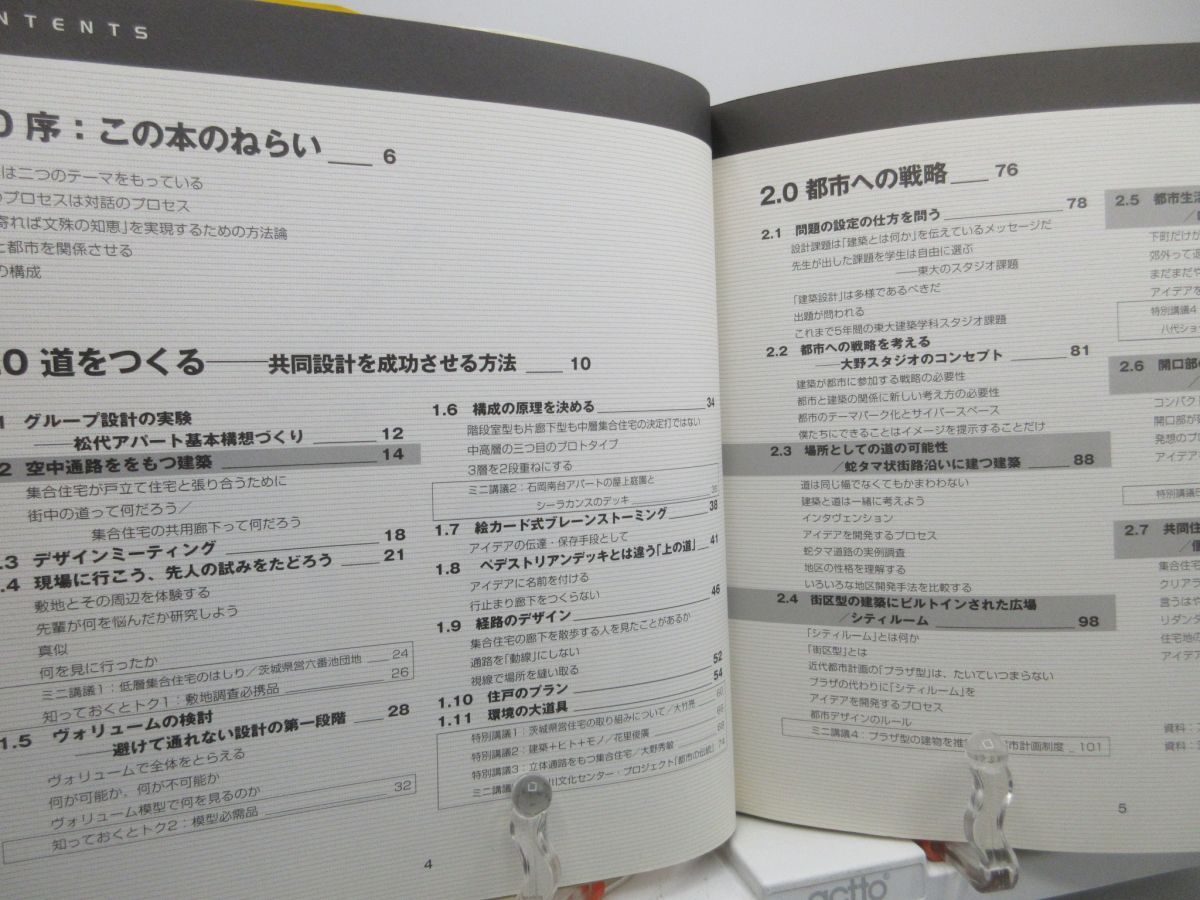 NTENTS
0 序：この本のねらい 6
は二つのテーマをもっている
のプロセスは対話のプロセス
寄れば文殊の知恵」を実現するための方法論
と都市を関係させる
の構成
.0 道をつくる――共同設計を成功させる方法 10
1 グループ設計の実験
――松代アパート基本構想づくり 12
2 空中通路ををもつ建築 14
集合住宅が戸立て住宅と張り合うために
街中の道って何だろう／
集合住宅の共用廊下って何だろう
.3 デザインミーティング 18
.4 現場に行こう、先人の試みをたどろう 21
敷地とその周辺を体験する
先輩が何を悩んだか研究しよう
真似
何を見に行ったか
ミニ講議1：低層集合住宅のはしり／茨城県営六番池団地 24
知っておくとトク1：敷地調査必携品 26
1.5 ヴォリュームの検討
――避けて通れない設計の第一段階 28
ヴォリュームで全体をとらえる
何が可能か、何が不可能か
ヴォリューム模型で何を見るのか
知っておくとトク2：模型必需品 32
1.6 構成の原理を決める 34
階段室型も片廊下型も中層集合住宅の決定打ではない
中高層の三つ目のプロトタイプ
3層を2段重ねにする
ミニ講議2：石岡南台アパートの屋上庭園と
シーラカンスのデッキ 36
1.7 絵カード式ブレーンストーミング 38
アイデアの伝達・保存手段として
1.8 ペデストリアンデッキとは違う「上の道」 41
アイデアに名前を付ける
行止まり廊下をつくらない
1.9 経路のデザイン 46
集合住宅の廊下を散歩する人を見たことがあるか
通路を「動線」にしない
視線で場所を縫い取る
1.10 住戸のプラン 52
1.11 環境の大道具 54
特別講議1：茨城県営住宅の取り組みについて／大竹亮 60
特別講議2：建築＋ヒト＋モノ／花里俊廣 66
特別講議3：立体通路をもつ集合住宅／大野秀敏 68
ミニ講議 川文化センター・プロジェクト「都市の伝統」 74
4
2.0 都市への戦略 76
2.1 問題の設定の仕方を問う 78
設計課題は「建築とは何か」を伝えているメッセージだ
先生が出した課題を学生は自由に選ぶ
――東大のスタジオ課題
「建築設計」は多様であるべきだ
出題が問われる
これまで5年間の東大建築学科スタジオ課題
2.2 都市への戦略を考える
――大野スタジオのコンセプト 81
建築が都市に参加する戦略の必要性
都市と建築の関係に新しい考え方の必要性
都市のテーマパーク化とサイバースペース
僕たちにできることはイメージを提示することだけ
2.3 場所としての道の可能性
／蛇タマ状街路沿いに建つ建築 88
道は同じ幅でなくてもかまわわない
建築と道は一緒に考えよう
インタヴェンション
アイデアを開発するプロセス
蛇タマ道路の実例調査
地区の性格を理解する
いろいろな地区開発手法を比較する
2.4 街区型の建築にビルトインされた広場
／シティルーム 98
「シティルーム」とは何か
「街区型」とは
近代都市計画の「プラザ型」は、たいていつまらない
プラザの代わりに「シティルーム」を
アイデアを開発するプロセス
都市デザインのルール
ミニ講議4 プラザ型の建物を推 市計画制度 101
2.5 都市生活
下町だけが
郊外って退
まだまだや
アイデアを
特別講議4
八代ショ
2.6 開口部の
コンパクト
開口部が
発想のプ
アイデアを
特別講議5
2.7 共同住
集合住宅
クリアラ
言うはや
リダンダ
住宅地の
アイデア
資料：
資料：
5
actto